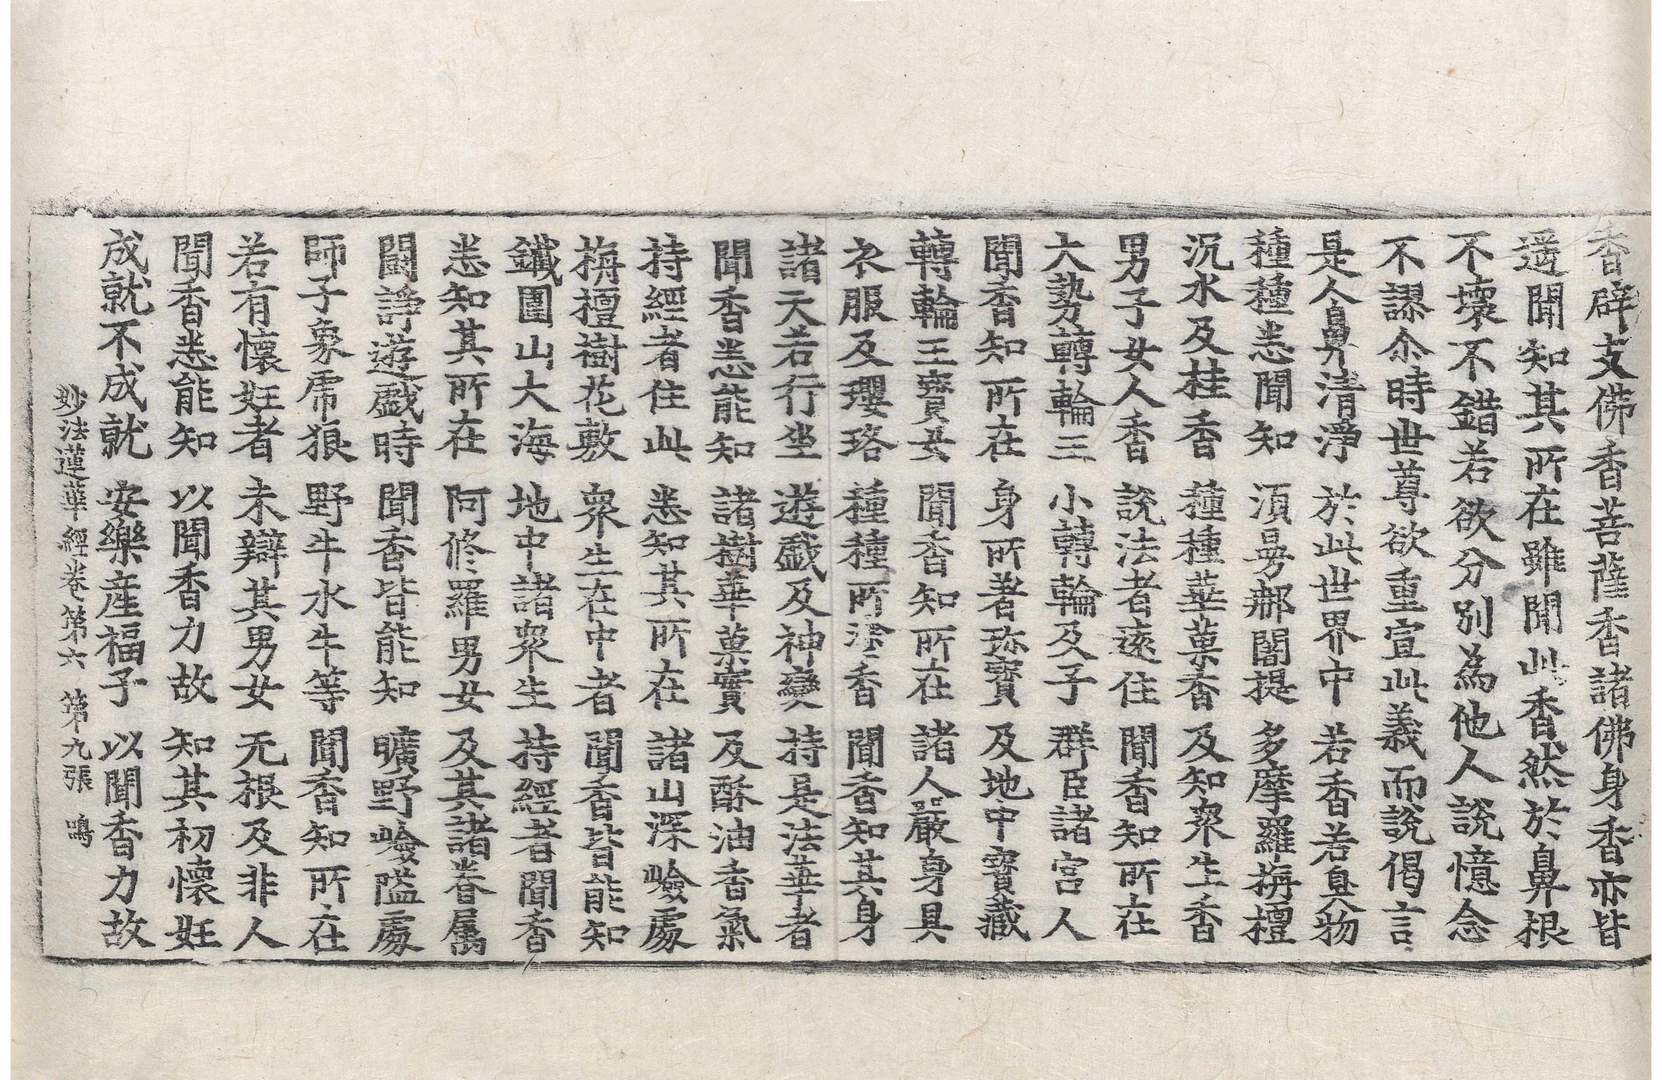 香辟支佛香菩薩香諸佛身香亦皆
遥聞知其所在雖聞此香然於鼻根
不壞不錯若欲分別為他人說憶念
不謬尒時世尊欲重宣此義而說偈言
是人鼻清淨 於此世界中 若香若臭物
種種悉聞知 湏曼那闍提 多摩羅栴檀
沉水及桂香 種種華菓香 及知衆生香
男子女人香 說法者遠住 聞香知所在
大勢轉輪王 小轉輪及子 群臣諸宮人
聞香知所在 身所著珎寶 及地中寶藏
轉輪王寶女 聞香知所在 諸人嚴身具
衣服及瓔珞 種種所塗香 聞香知其身
諸天若行坐 遊戲及神變 持是法華者
聞香悉能知 諸樹華菓實 及酥油香氣
持經者住此 悉知其所在 諸山深嶮處
栴檀樹花敷 衆生在中者 聞香皆能知
鐵圍山大海 地中諸衆生 持經者聞香
悉知其所在 阿修羅男女 及其諸眷属
鬪諍遊戲時 聞香皆能知 曠野嶮隘處
師子象虎狼 野牛水牛等 聞香知所在
若有懷妊者 未辯其男女 无根及非人
聞香悉能知 以聞香力故 知其初懷妊
成就不成就 安樂産福子 以聞香力故
妙法蓮華經卷第六 第九張 鳴